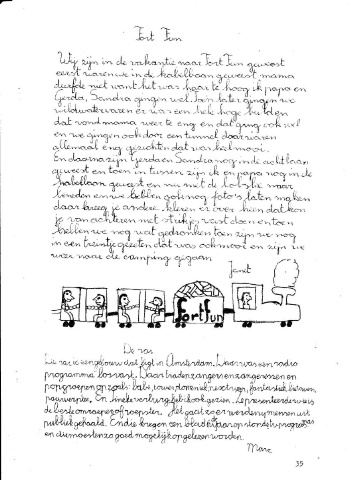 Fort Fun
Wij zijn in de vakantie naar Fort Fun geweest
eerst waren we in de kabelbaan geweest mama
durfde niet want het was haar te hoog ik papa en
Gerda, Sandra gingen wel. Een later gingen we
wildwatervaren er was een hele hoge bij en
dat vond mama weer te eng en dat ging ook wel
en we gingen ook door een tunnel daar waren
allemaal eng gezichten dat was heel mooi.
En daarna zijn Gerda en Sandra nog in de achtbaan
geweest en toen in tussen zijn ik en papa nog in de
kabelbaan geweest en nu met de naar
beneden en we hebben ook nog foto's laten maken
daar kreeg je andere kleren er over heen dat kon
je van achteren met strikjes vast doen en toen
hebben we nog wat gedronken toen zijn we nog
in een treintje gezeten dat was ook mooi en zijn we
weer naar de camping gegaan
Janet
fort fun
De ras
De ras is een gebouw dat ligt in Amsterdam. Daar was een radio
programma los vast. Daar traden zangers en zangeressen en
popgroepen op zoals: babe, tower,
pauwerplee, En Ineke verburg heb ik ook gezien. Ze presenteerde wie is
de beste omroeper of roepster. Het gaat zo er werden 4 mensen uit
publiek gehaald. En die kregen een blaadje daar op stonden
en die moesten zo goed mogelijk opgelezen worden.
Marc
35